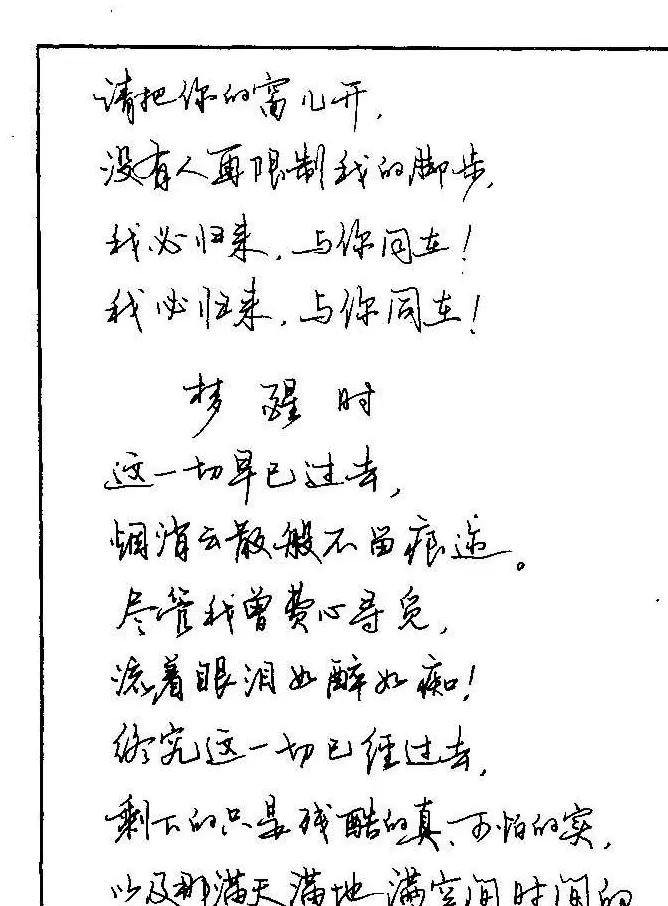 请把你的窗儿开,
没有人再限制我的脚步,
我必归来, 与你同在!
我必归来, 与你同在!
梦 醒 时
这一切早已过去,
烟消云散般不留痕迹。
尽管我曾费心寻觅,
流着眼泪如醉如痴!
终究这一切已经过去,
剩下的只是残酷的真、可怕的实,
以及那满天满地满空间时间的